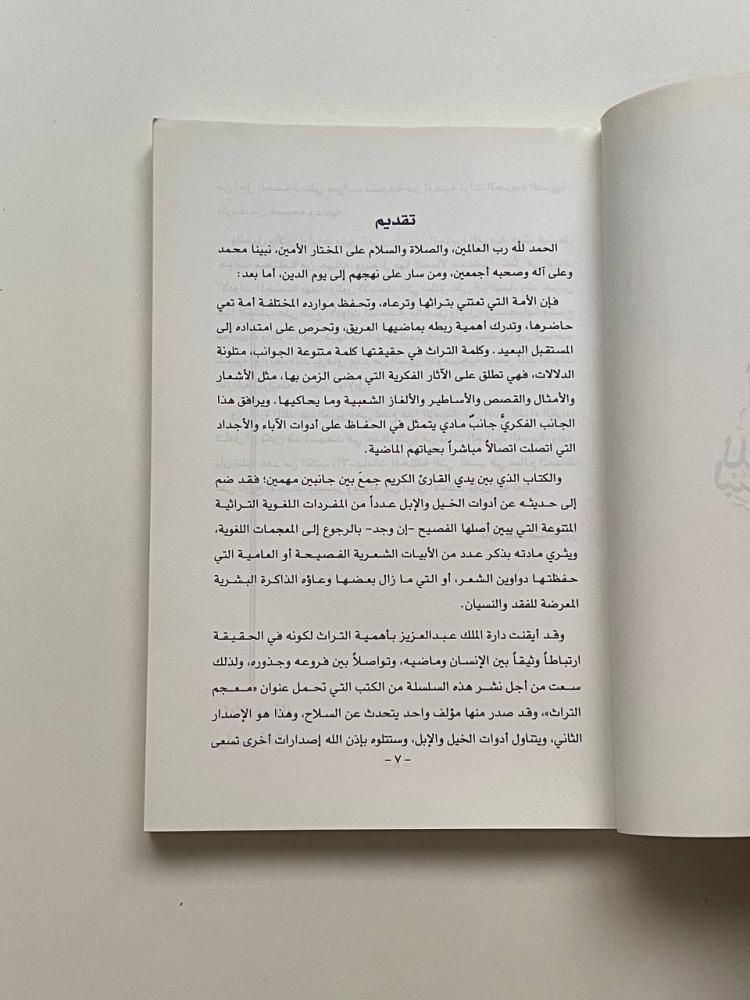 تقديم
الحمد لله رب العالمين، والصلاة والسلام على المختار الأمين، نبينا محمد
وعلى آله وصحبه أجمعين، ومن سار على نهجهم إلى يوم الدين، أما بعد:
فإن الأمة التي تعتني بتراثها وترعاه، وتحفظ موارده المختلفة أمة تعي
حاضرها، وتدرك أهمية ربطه بماضيها العريق، وتحرص على امتداده إلى
المستقبل البعيد. وكلمة التراث في حقيقتها كلمة متنوعة الجوانب، متلونة
الدلالات، فهي تطلق على الآثار الفكرية التي مضى الزمن بها، مثل الأشعار
والأمثال والقصص والأساطير والألغاز الشعبية وما يحاكيها. ويرافق هذا
الجانب الفكريَّ جانبٌ مادي يتمثل في الحفاظ على أدوات الآباء والأجداد
التي اتصلت اتصالاً مباشراً بحياتهم الماضية.
والكتاب الذي بين يدي القارئ الكريم جمعَ بين جانبين مهمين؛ فقد ضم
إلى حديثه عن أدوات الخيل والإبل عدداً من المفردات اللغوية التراثية
المتنوعة التي يبين أصلها الفصيح -إن وجد- بالرجوع إلى المعجمات اللغوية،
ويثري مادته بذكر عدد من الأبيات الشعرية الفصيحة أو العامية التي
حفظتها دواوين الشعر، أو التي ما زال بعضها وعاؤه الذاكرة البشرية
المعرضة للفقد والنسيان.
وقد أيقنت دارة الملك عبدالعزيز بأهمية التراث لكونه في الحقيقة
ارتباطاً وثيقاً بين الإنسان وماضيه، وتواصلاً بين فروعه وجذوره، ولذلك
سعت من أجل نشر هذه السلسلة من الكتب التي تحمل عنوان «معجم
التراث»، وقد صدر منها مؤلف واحد يتحدث عن السلاح، وهذا هو الإصدار
الثاني، ويتناول أدوات الخيل والإبل، وستتلوه بإذن الله إصدارات أخرى تسعى
- ٧ -